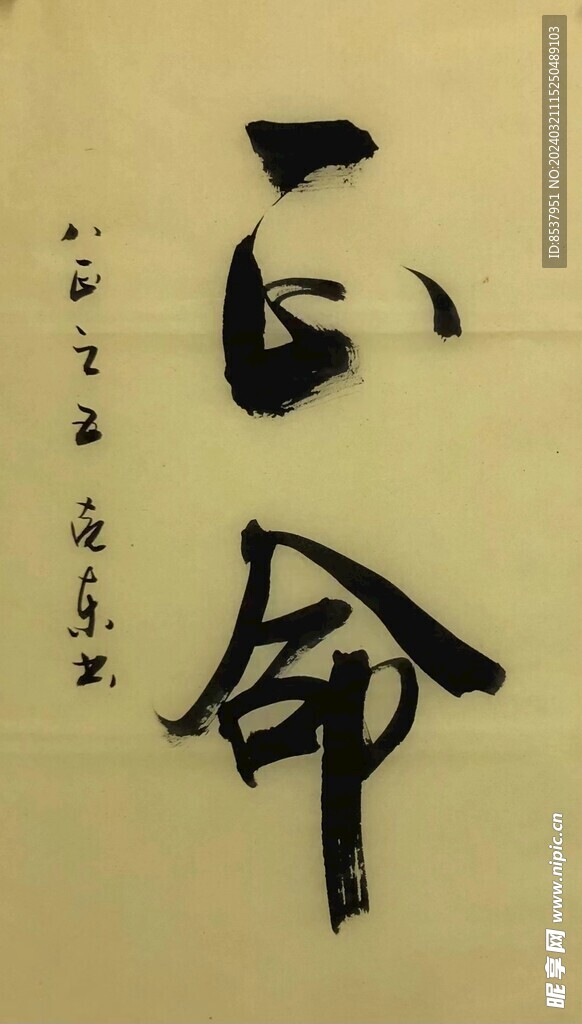 正命
八正之五 克东书
ID:8537951 NO:20240321115250489103
昵享网 www.nipic.cn